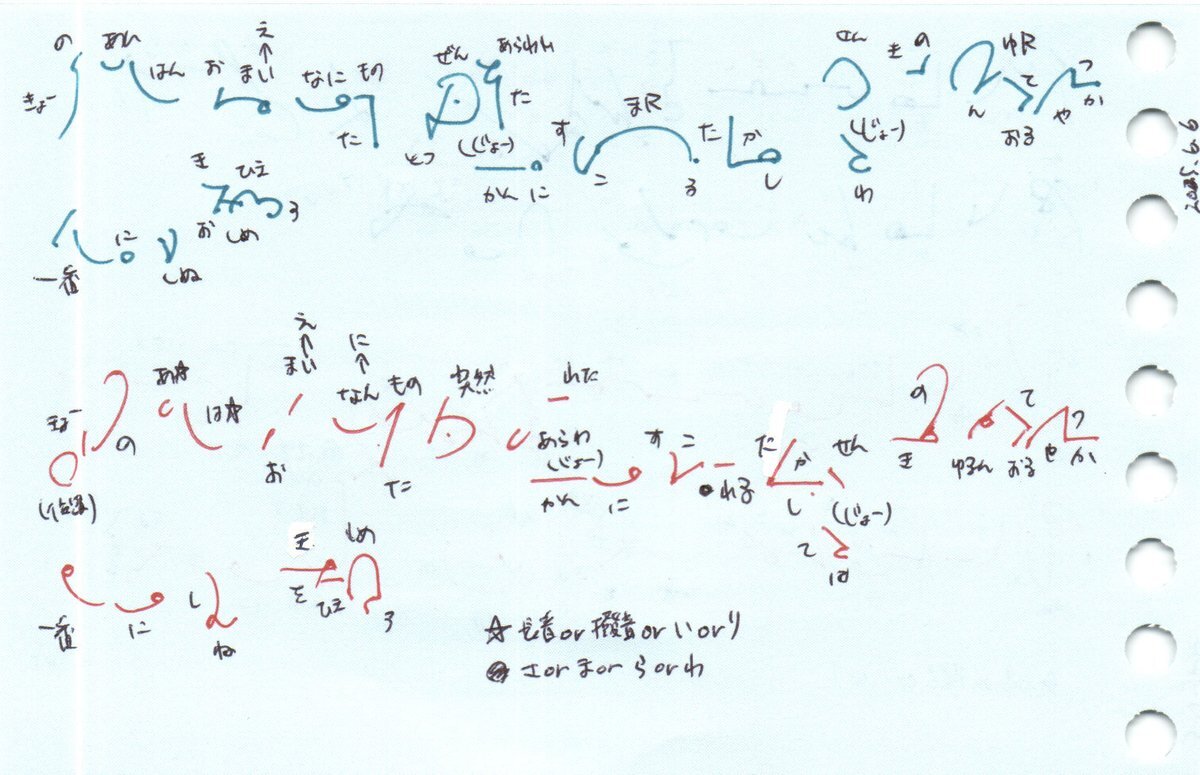 の あん え ぜん あらわれ さん き の ゆR つ
きょー はん お まい なに もの た す まR た か (じょー) ん て や か
た とつ (じょー) こ る し おる
かん に わ
き ひえ
お しめ ろ
一番 に しぬ
え に
まい なん もの 突然 れた の て つ
きょー あ☆ は☆ すこ だ せん
の お た あらわ か き ゆるん おる や か
(じょー) れる し (じょー)
かん に て は
き しめ
を ひえ ろ
一番 に し ね
☆ 長音or撥音orいorり
● さorまorらorわ